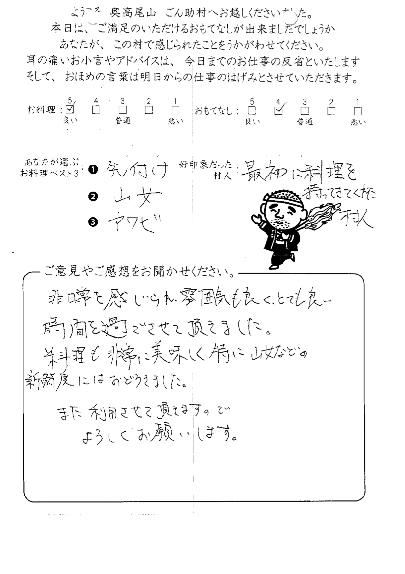 ようこそ 奥高尾山 ごん助村へお越しくださいました。
本日は、ご満足のいただけるおもてなしが出来ましたでしょうか
あなたが、この村で感じられたことをうかがわせてください。
耳の痛いお小言やアドバイスは、今日までのお仕事の反省といたします
そして、おほめの言葉は明日からの仕事のはげみとさせていただきます。
お料理： 5 4 3 2 1 おもてなし： 5 4 3 2 1
良い 普通 悪い 良い 普通 悪い
あなたが選ぶ
お料理ベスト3
1 先付け
2 山女
3 アワビ
好印象だった
村人
最初に料理を
持ってきてくれた
村人
ご意見やご感想をお聞かせください。
非日常を感じられ雰囲気も良く、とても良い
時間を過ごさせて頂きました。
お料理も非常に美味しく特に山女などの
新鮮度にはおどろきました。
また利用させて頂きますので
よろしくお願いします。